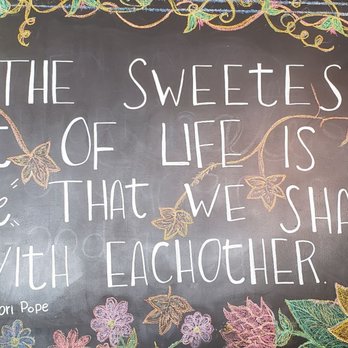 THE SWEETES
OF LIFE IS
THAT WE SHA
WITH EACHOTHER.
ori Pope